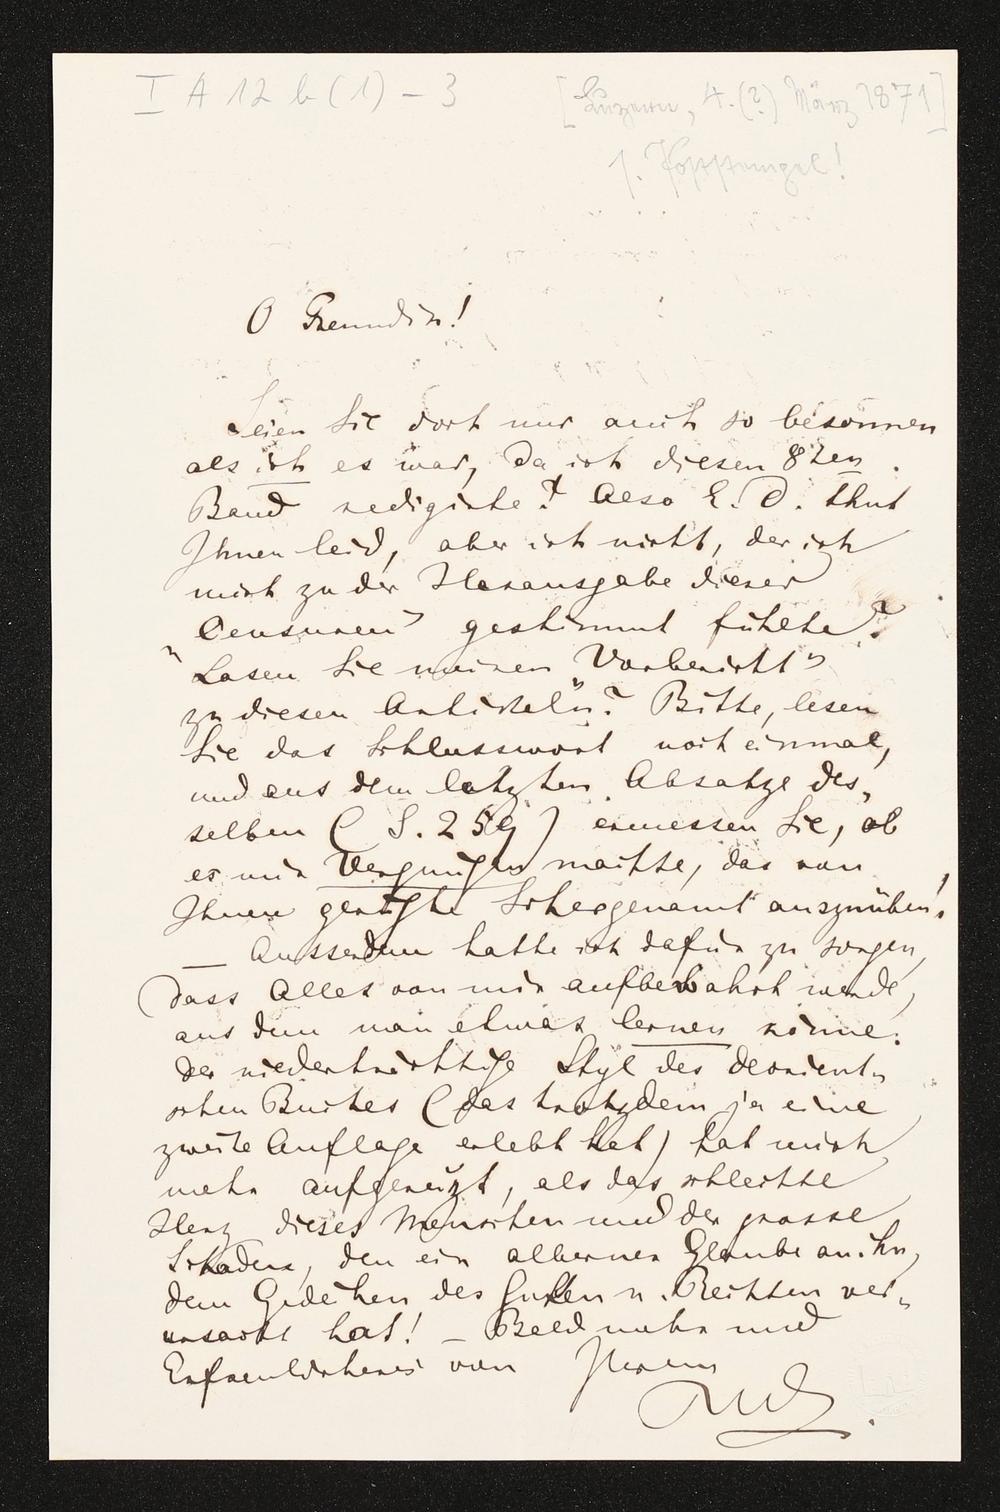 I A 12 b (1) – 3
[Luzern, 4. (?) März 1871]
s. Poststempel!
O Freundin!
Seien Sie dort nur auch so besonnen
als ich es war, da ich diesen 8ten
Band redigirte! Also E. D. thut
Ihnen leid, aber ich nicht, der ich
mich zu der Herausgabe dieser
"Censuren" gestimmt fühlte?
Lasen Sie meinen "Vorbericht"
zu diesen "Artikeln"? Bitte, lesen
Sie das Schlusswort noch einmal,
und aus dem letzten Absatze des-
selben ( S. 259 ) ermessen Sie, ob
es mir Vergnügen machte, das von
Ihnen gerügte Schergenamt auszuüben!
— Ausserdem hatte ich dafür zu sorgen,
dass Alles von mir aufbewahrt werde,
aus dem man etwas lernen könne:
der niederträchtige Styl des devrient-
schen Buches (das trotzdem ja eine
zweite Auflage erlebt hat) hat mich
mehr aufgereizt, als das schlechte
Herz dieses Menschen und der grosse
Schaden, den ein alberner Glaube an ihn,
dem Gedeihen des Guten u. Rechten ver-
ursacht hat! – Bald mehr und
Erfreulicheres von Ihrem